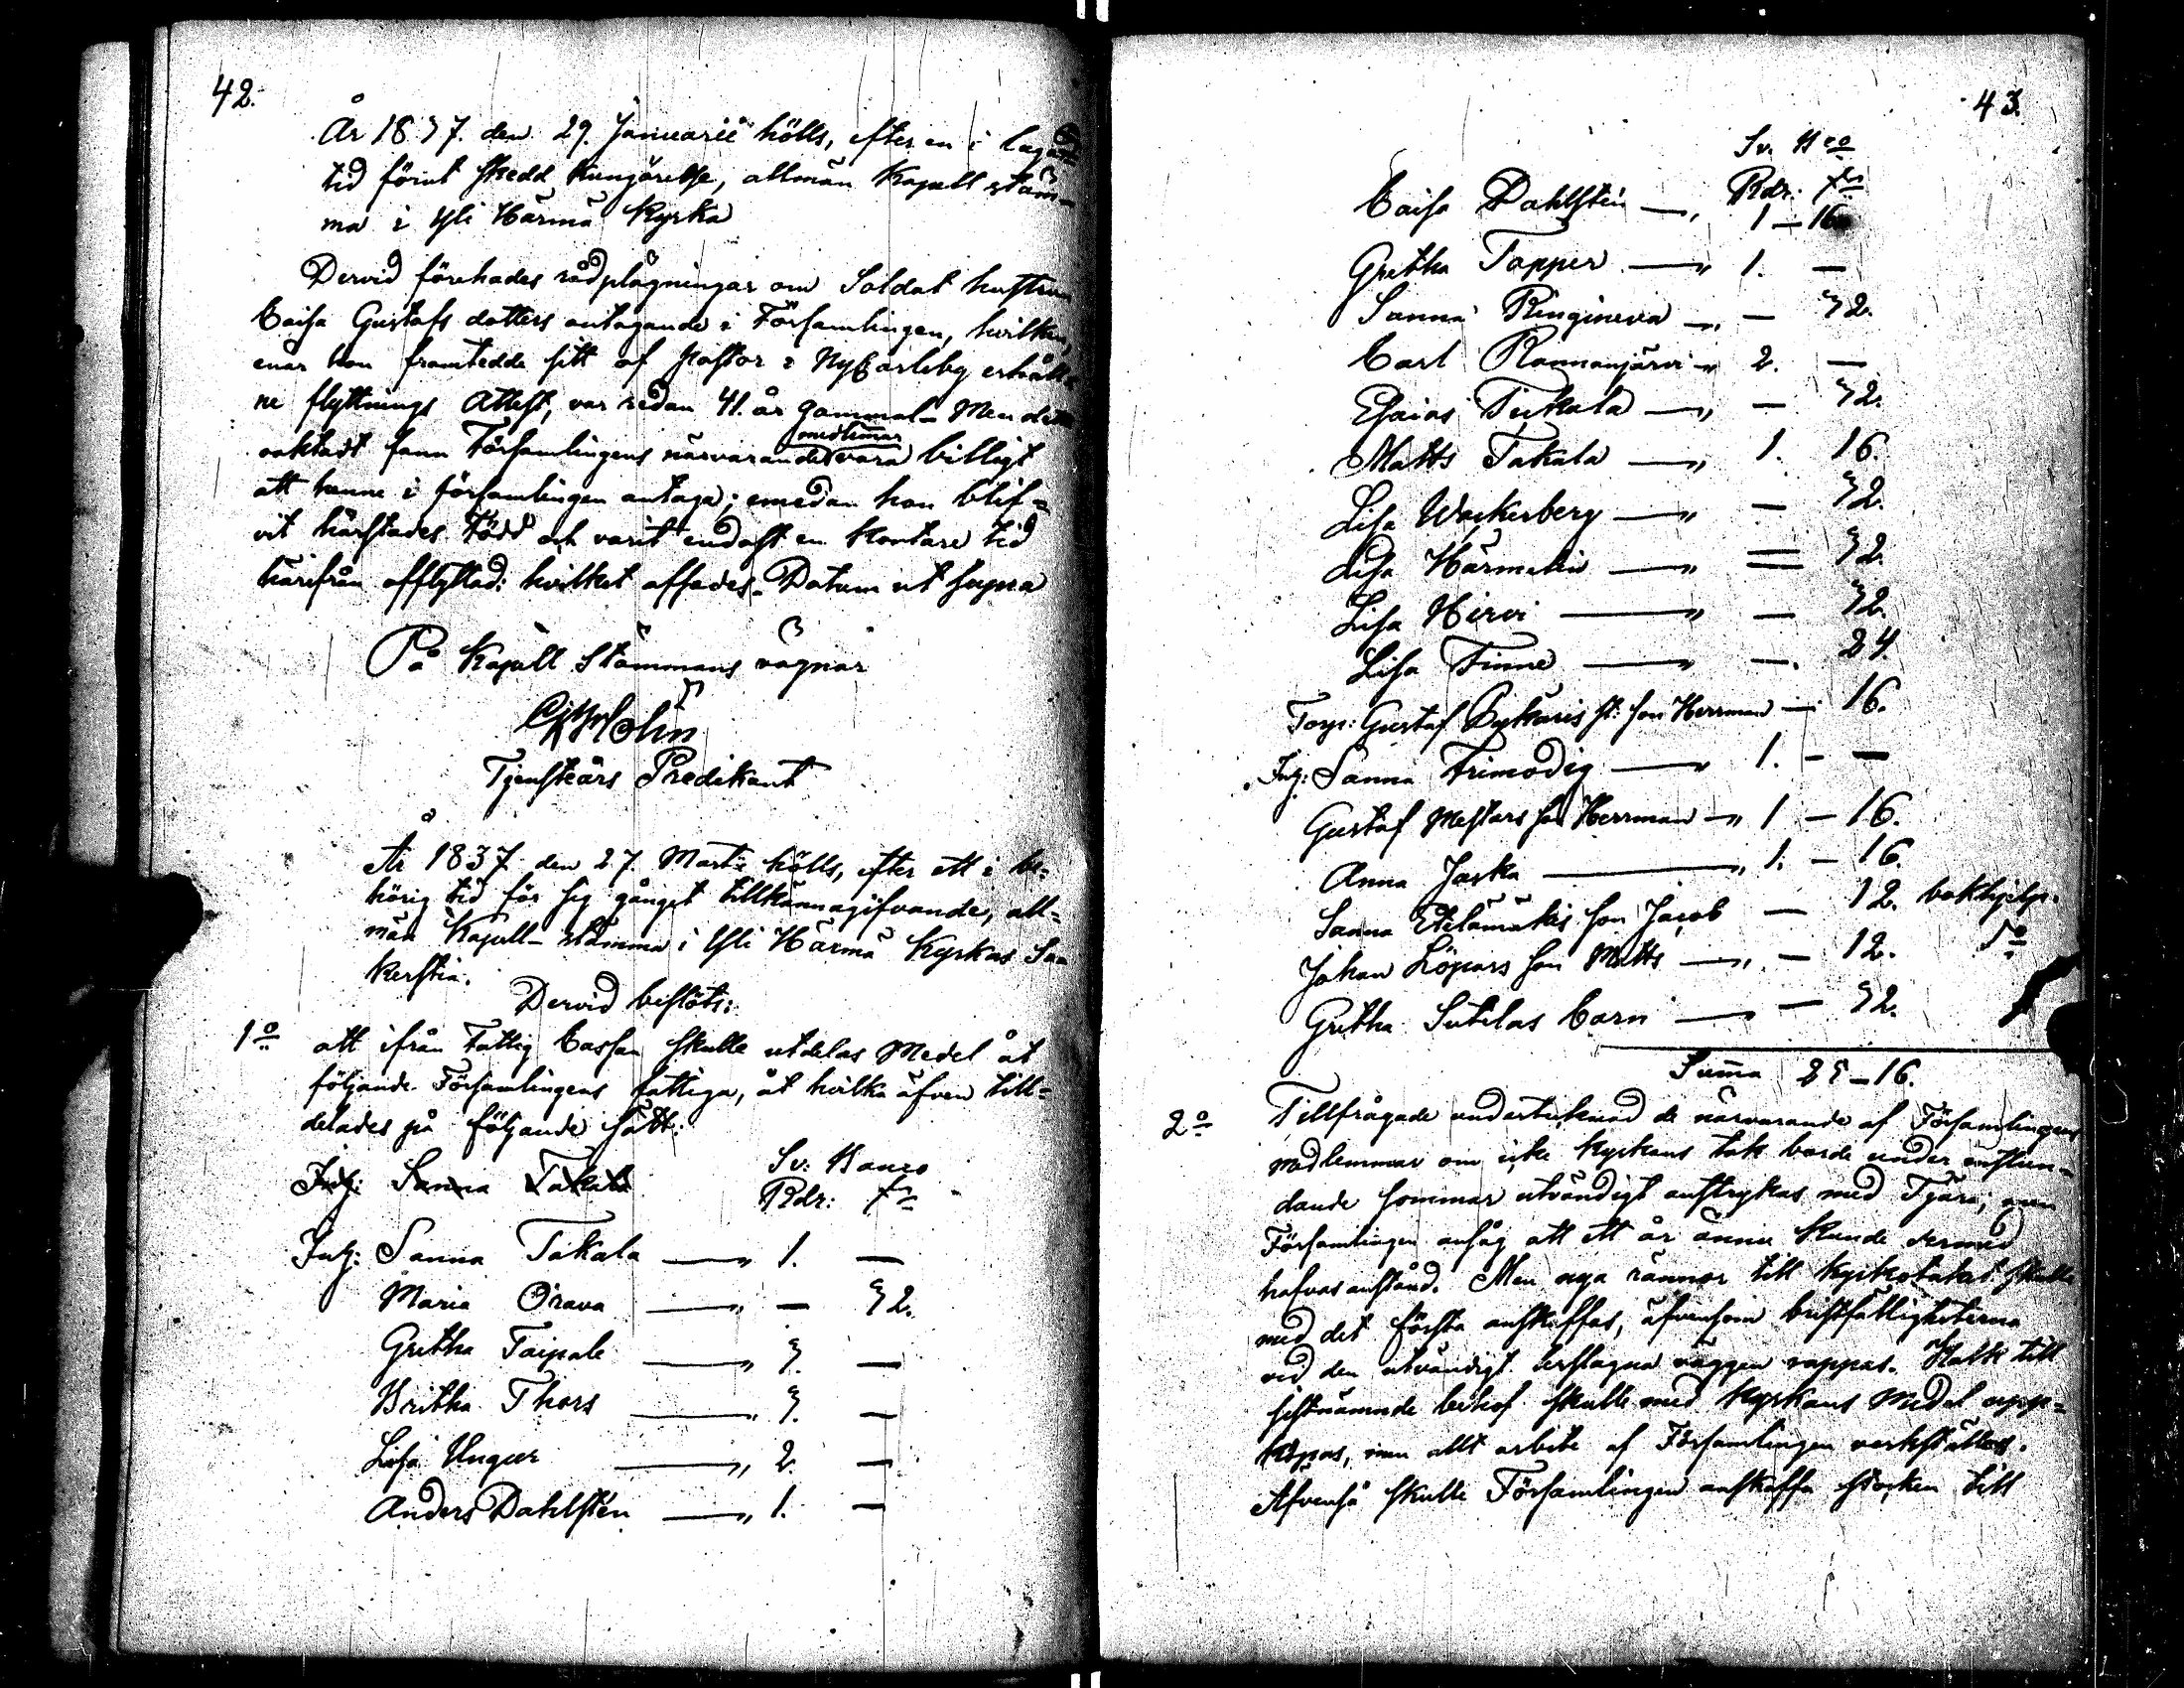 42.
År 1837. den 29. Januarii hölls, efter en i laga
tid förut skedd kungörelse, allmän Kapell stäm-
ma i Yli Härmä Kyrka
Dervid förehades rådplägningar om Soldat hustrun
Caisa Gustafs dotters antagande i Församlingen, hvilken,
enär hon framtedde sitt af Pastor i NyCarleby erhåll-
ne flyttnings Attest, var redan 41. år gammal - Men det
oaktadt fann Församlingens närvarande medlemmar vara billigt
att henne i församlingen antaga; emedan hon blif=
vit härstädes född och varit endast en kortare tid
härifrån afflyttad: hvilket affades. Datum ut supra
På Kapell Stämmans vägnar
Tjenstörs Predikant
År 1837 den 27. Martii hölls, efter ett i be=
hörig tid för sig gånget tillkännagifvande, all=
män Kapell-stämma i Yli Härmä Kyrkas Sa
kerstia.
Dervid beslöts:
1o att ifrån Fattig Cassan skulle utdelas Medel åt
följande Församlingens fattiga, åt hvilka äfven till=
delades på följande sätt:
Sv: Banco
Inh: Sanna Takala Rdr:
Inh: Sanna Takala —„ 1. —
Maria Orava —„ — 32.
Gretha Taipale —„ 3. —
Britha Thors —„ 3. —
Lisa Unger —„ 2. —
Anders Dahlstén —„ 1. —
43.
Sv. Bco
Rdr.
Caisa Dahlstén —„ 1 — 16
Gretha Topper —„ 1. —
Sanna Ringineva —„ — 32.
Carl Rannanjärvi —„ 2. —
Esaias Tiikala —„ — 32.
Matts Takala —„ 1. 16.
Lisa Wackerberg —„ — 32.
Lisa Härmälin —„ — 32.
Lisa Hirvi —„ — 32.
Lisa Finne —„ —. 24.
Torp: Gustaf st: son Herrman — 16.
Inh: Sanna Frimodig —„ 1. - —
Gustaf Mestars son Herrman —„ 1 — 16.
Anna Jaska —„ 1. — 16.
Sanna Etelämäkis son Jacob — 12. bokhjelp.
Johan Löpars son Matts —„ — 12. do
Gretha Sutelas barn —„ — 32.
Summa 25 — 16.
2o Tillfrågade undertecknad de närvarande af Församlingens
medlemmar om icke kyrkans tak borde under anstun=
dande sommar utvändigt anstrykas med Tjära; men
Församlingen ansåg att ett år ännu kunde dermed
hafvas anstånd. Men nya rännor till kyrkotaket skulle
med det första anskaffas, äfvensom bristfälligheterna
vid den utvändigt väggen rappas. Kalk till
sistnämnde behof skulle med kyrkans medel upp=
köpas, men allt arbete af Församlingen verkställas.
Äfvenså skulle Församlingen anskaffa stocken till